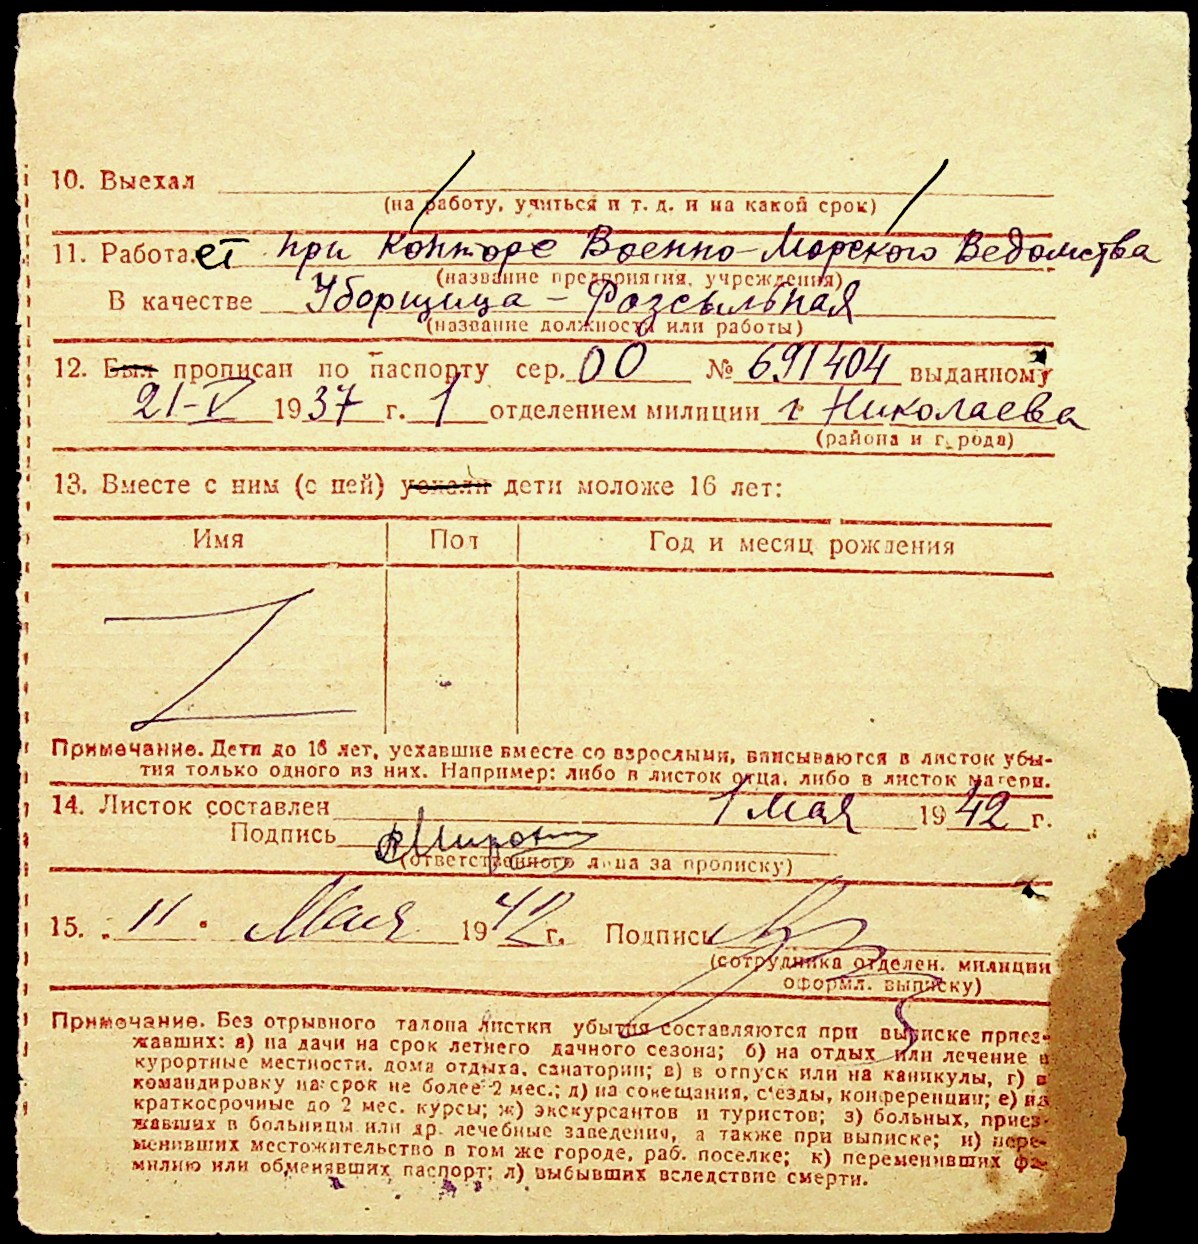 10. Выехал
(на работу, учиться и т. д. и на какой срок)
11. Работает при Конторе Военно-Морского Ведомства
(название предприятия, учреждения)
В качестве Уборщица - Розсыльная
(название должности или работы)
12. Был прописан по паспорту сер. 00 № 691404 выданному
21-V 1937 г. 1 отделением милиции г. Николаева
(района и города)
13. Вместе с ним (с ней) уехали дети моложе 16 лет:
Имя Пол Год и месяц рождения
Примечание. Дети до 16 лет, уехавшие вместе со взрослыми, вписываются в листок убы-
тия только одного из них. Например: либо в листок отца, либо в листок матери.
14. Листок составлен 1 мая 1942 г.
Подпись
(ответственного лица за прописку)
15. 11 Мая 1942 г. Подпись
(сотрудника отделен. милиции
оформл. выписку)
Примечание. Без отрывного талона листки убытия составляются при выписке приез-
жавших: а) на дачи на срок летнего дачного сезона; б) на отдых или лечение в
курортные местности, дома отдыха, санатории; в) в отпуск или на каникулы, г) в
командировку на срок не более 2 мес.; д) на совещания, с'езды, конференции; е) на
краткосрочные до 2 мес. курсы; ж) экскурсантов и туристов; з) больных, приез-
жавших в больницы или др. лечебные заведения, а также при выписке; и) пере-
менивших местожительство в том же городе, раб. поселке; к) переменивших фа-
милию или обменявших паспорт; л) выбывших вследствие смерти.